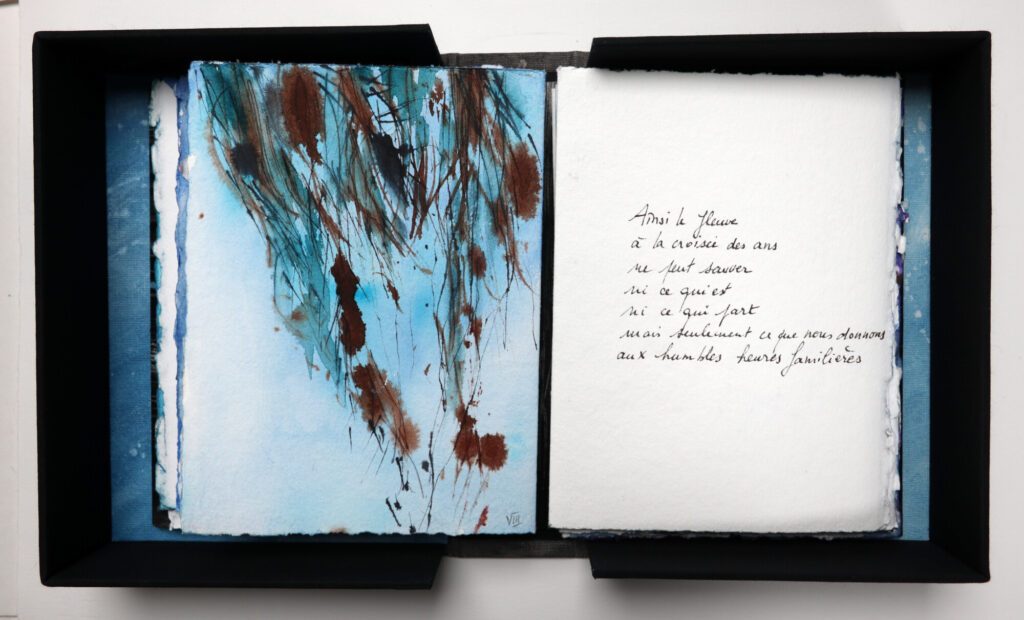 VIII
Ainsi le fleuve
à la croisée des ans
ne peut sauver
ni ce qui est
ni ce qui part
mais seulement ce que nous donnons
aux humbles heures familières